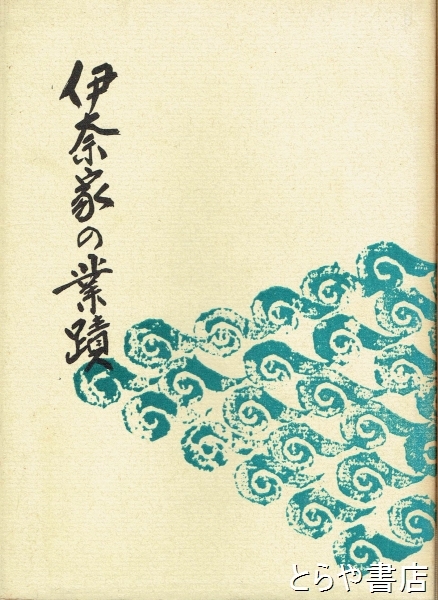 伊奈家の業蹟
とらや書店